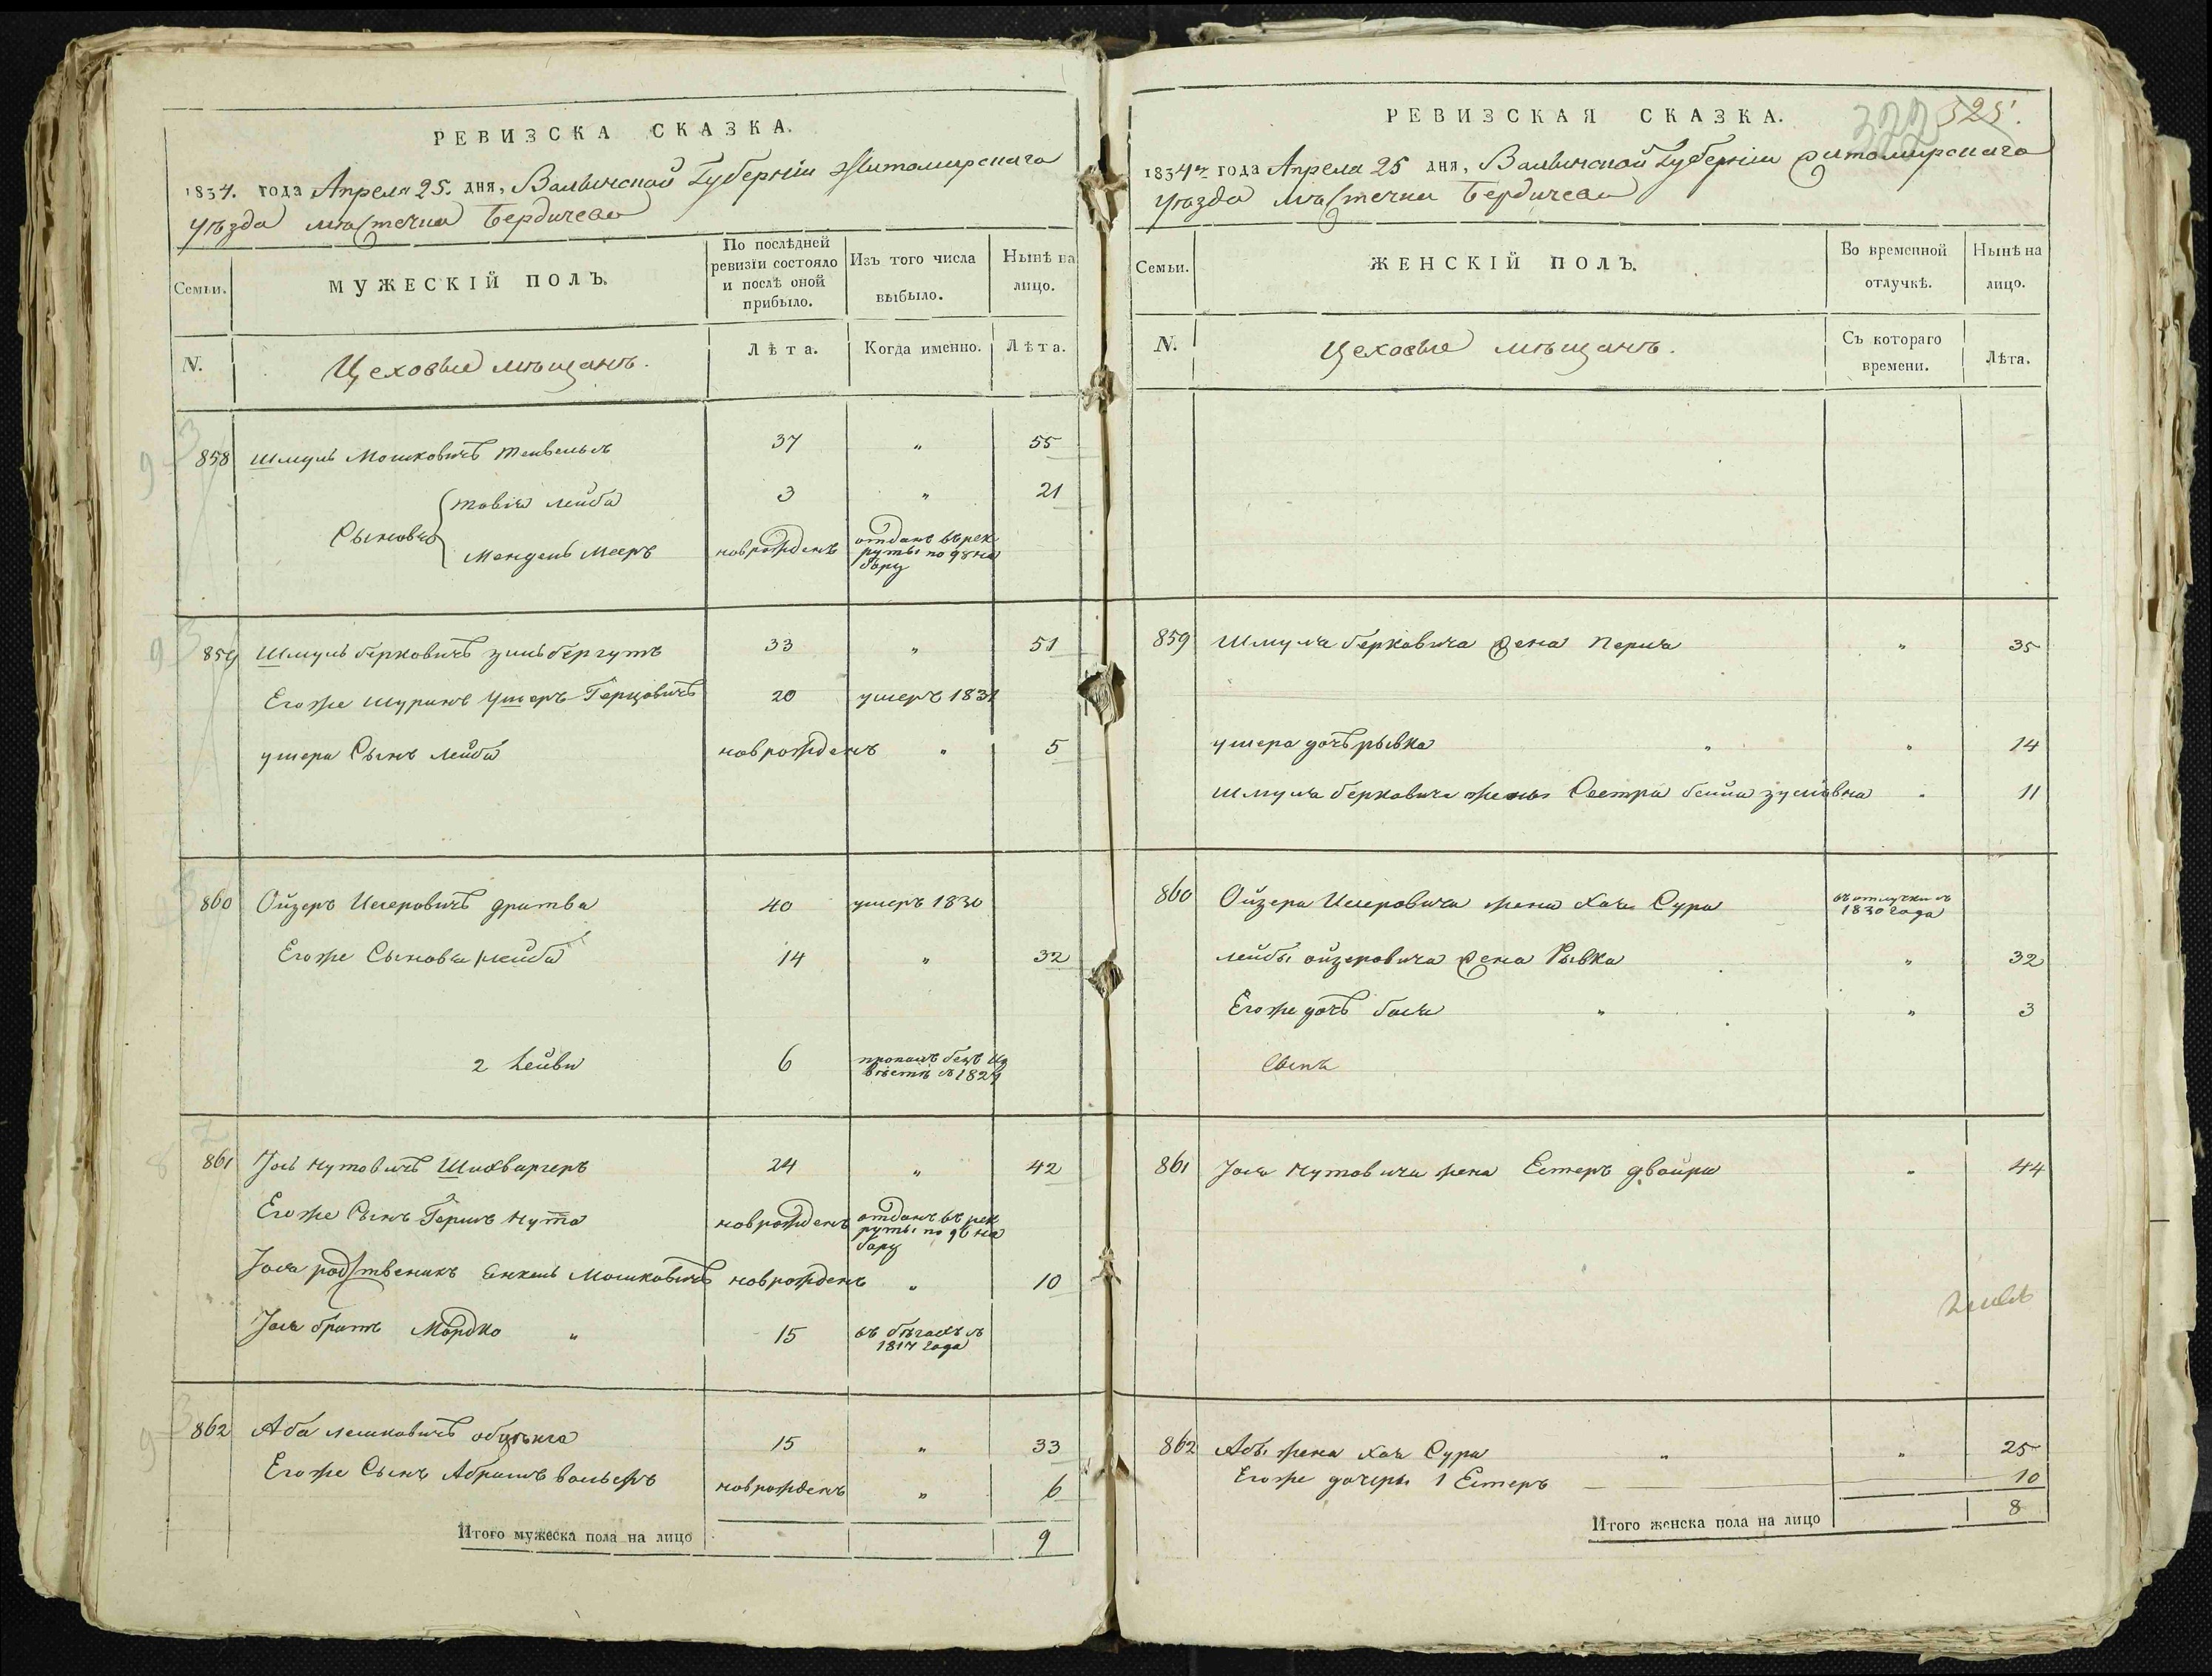 РЕВИЗСКА СКАЗКА.
1834. года Апреля 25. дня, Валынской Губерніи Житомирскаго
уѣзда мѣстечка Бердичева
Семьи.
МУЖЕСКІЙ ПОЛЪ.
По послѣдней ревизіи состояло и послѣ оной прибыло.
Изъ того числа выбыло.
Нынѣ на лицо.
N.
Цеховые мѣщанъ.
Лѣта.
Когда именно.
Лѣта.
858 Шмуль Мошковичъ 37 „ 55
Сыновья
товія лейба 3 „ 21
Мендель Мееръ новрожденъ отданъ въ рекруты по набору
859 Шмуль берковичъ зильбергутъ 33 „ 51
Егоже шуринъ Ушеръ Герцовичъ 20 умеръ 1831
ушера Сынъ лейба новрожденъ „ 5
860 Ойзеръ Исеровичъ дратва 40 умеръ 1830
Егоже Сыновья 1 лейба 14 „ 32
2 Лейви 6 пропалъ безъ извѣстія съ 1829
861 Іось нутовичъ Шихваргеръ 24 „ 42
Егоже Сынъ Гершъ нута новрожденъ отданъ въ рекруты по набору
Іося родственикъ Енкель Мошковичъ новрожденъ „ 10
Іося братъ Мордко „ 15 въ бѣгахъ съ 1817 года
862 Аба лейбковичъ 15 „ 33
Егоже Сынъ Абрамъ вольфъ новрожденъ „ 6
Итого мужеска пола на лицо 9
322 325.
РЕВИЗСКАЯ СКАЗКА.
1834го года Апреля 25 дня, Валынской Губерніи Житомирскаго
уѣзда мѣстечка Бердичева
Семьи.
ЖЕНСКІЙ ПОЛЪ.
Во временной отлучкѣ.
Нынѣ на лицо.
N.
Цеховые мѣщанъ.
Съ котораго времени.
Лѣта.
859 Шмуля берковича жена Перля „ 35
ушера дочь рывка „ „ 14
шмуля берковича жены Сестра бейла „ 11
860 Ойзера Исеровича жена Хая Сура въ отлучки съ 1830 года
лейбы ойзеровича жена Рывка „ 32
Егоже дочь бася „ „ 3
861 Іося нутовича жена Естеръ двойра „ 44
862 Абы жена хая Сура „ „ 25
Егоже дочеры 1 Естеръ 10
Итого женска пола на лицо 8